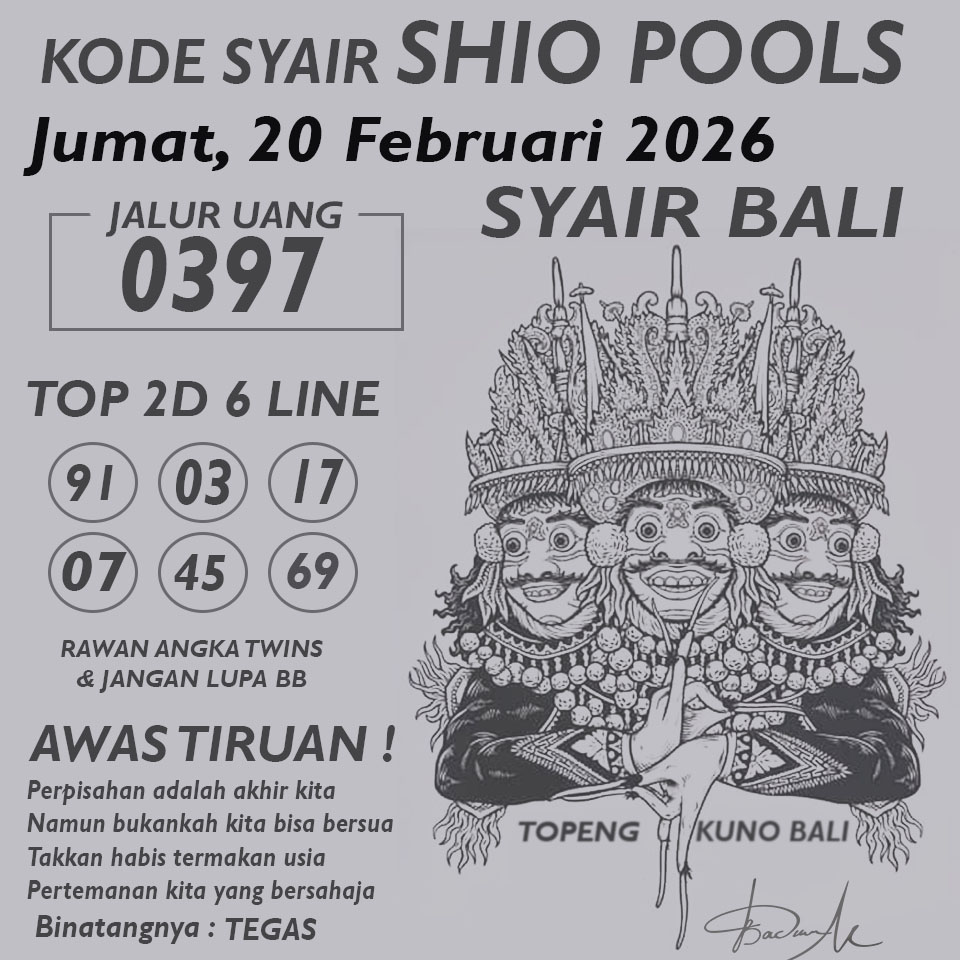 KODE SYAIR SHIO POOLS
Jumat, 20 Februari 2026
SYAIR BALI
JALUR UANG
0397
TOP 2D 6 LINE
91 03 17
07 45 69
RAWAN ANGKA TWINS
& JANGAN LUPA BB
AWAS TIRUAN !
Perpisahan adalah akhir kita
Namun bukankah kita bisa bersua
Takkan habis termakan usia
Pertemanan kita yang bersahaja
Binatangnya : TEGAS
TOPENG KUNO BALI